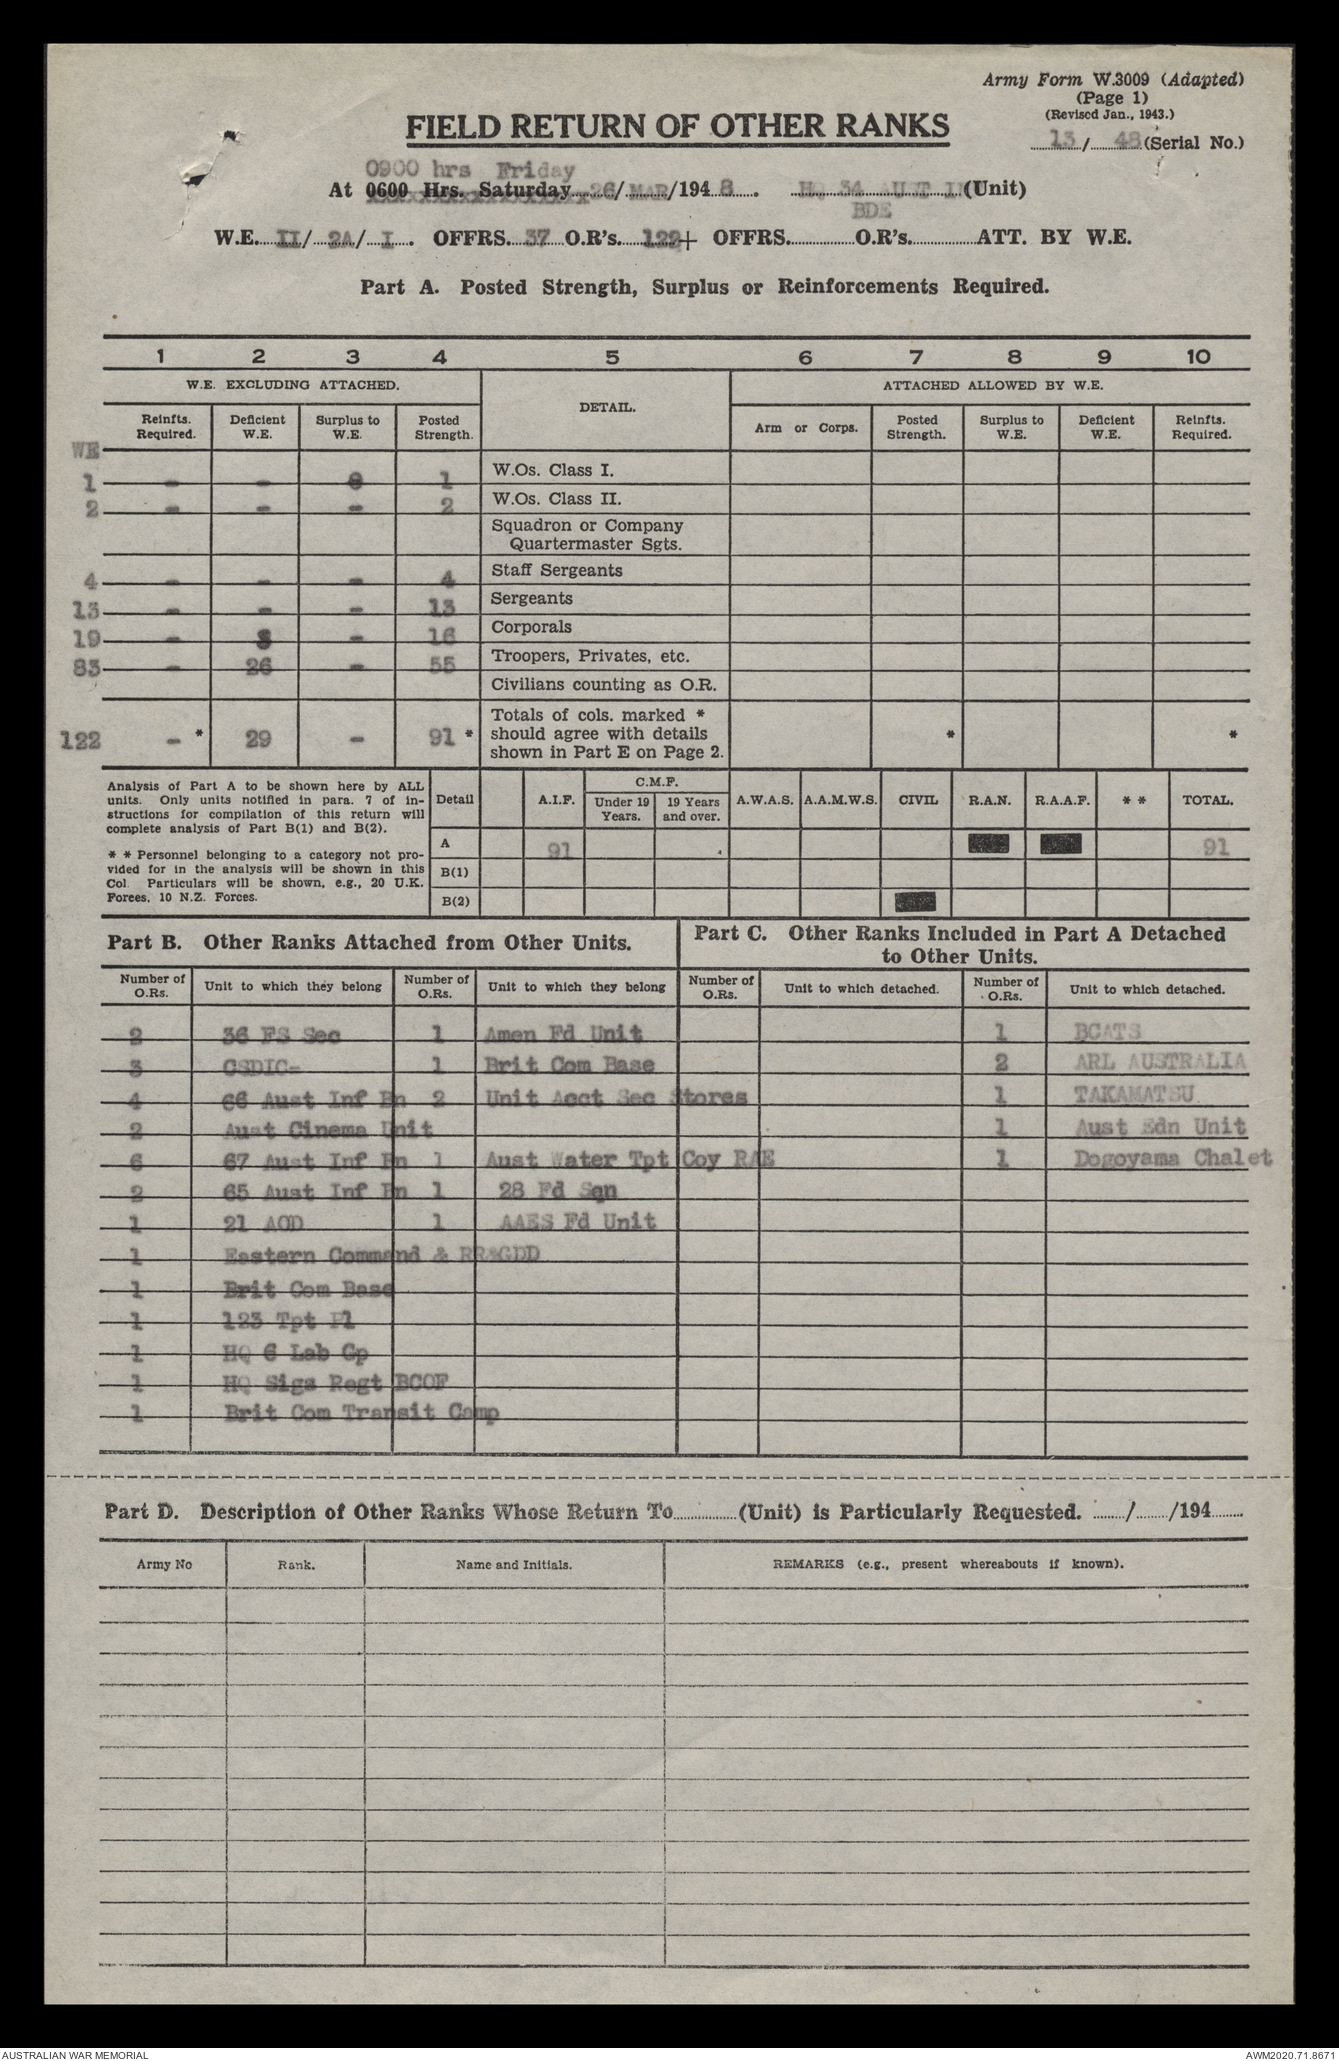 Army Form W.3009 (Adapted)
(Page 1)
(Revised Jan., 1943.)
13/48 (Serial No.)
FIELD RETURN OF OTHER RANKS
0900 hrs Friday
At 0600 Hrs. Saturday 26/MAR/1948. HQ 34 AUST I (Unit)
BDE
W.E. II/2A/I. OFFRS. 37 O.R's. 122+ OFFRS. O.R's. ATT. BY W.E.
Part A. Posted Strength, Surplus or Reinforcements Required.
1 2 3 4 5 6 7 8 9 10
W.E. EXCLUDING ATTACHED. DETAIL. ATTACHED ALLOWED BY W.E.
Reinfts. Required. Deficient W.E. Surplus to W.E. Posted Strength. Arm or Corps. Posted Strength. Surplus to W.E. Deficient W.E. Reinfts. Required.
WE
1 - - 1 W.Os. Class I.
2 - - - 2 W.Os. Class II.
Squadron or Company
Quartermaster Sgts.
4 - - - 4 Staff Sergeants
13 - - - 13 Sergeants
19 - 3 - 16 Corporals
83 - 26 - 55 Troopers, Privates, etc.
Civilians counting as O.R.
Totals of cols. marked *
should agree with details
shown in Part E on Page 2.
122 - * 29 - 91 * * *
Analysis of Part A to be shown here by ALL
units. Only units notified in para. 7 of in-
structions for compilation of this return will
complete analysis of Part B(1) and B(2).
* * Personnel belonging to a category not pro-
vided for in the analysis will be shown in this
Col. Particulars will be shown, e.g., 20 U.K.
Forces, 10 N.Z. Forces.
Detail A.I.F. C.M.F. Under 19 Years. 19 Years and over. A.W.A.S. A.A.M.W.S. CIVIL R.A.N. R.A.A.F. * * TOTAL.
A 91 91
B(1)
B(2)
Part B. Other Ranks Attached from Other Units.
Part C. Other Ranks Included in Part A Detached
to Other Units.
Number of O.Rs. Unit to which they belong Number of O.Rs. Unit to which they belong Number of O.Rs. Unit to which detached. Number of O.Rs. Unit to which detached.
2 36 FS Sec 1 Amen Fd Unit 1 BCATS
3 CSDIC- 1 Brit Com Base 2 ARL AUSTRALIA
4 66 Aust Inf Bn 2 Unit Acct Sec Stores 1 TAKAMATSU
2 Aust Cinema Unit 1 Aust Edn Unit
6 67 Aust Inf Bn 1 Aust Water Tpt Coy RAE 1 Dogoyama Chalet
2 65 Aust Inf Bn 1 28 Fd Sqn
1 21 AOD 1 AAES Fd Unit
1 Eastern Command & RR&GDD
1 Brit Com Base
1 123 Tpt Pl
1 HQ 6 Lab Gp
1 HQ Sigs Regt BCOF
1 Brit Com Transit Camp
Part D. Description of Other Ranks Whose Return To (Unit) is Particularly Requested. / /194
Army No Rank. Name and Initials. REMARKS (e.g., present whereabouts if known).
AUSTRALIAN WAR MEMORIAL
AWM2020.71.8671